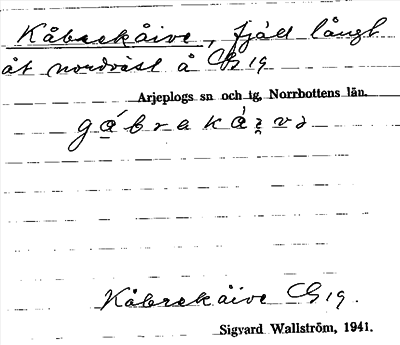 Kåbrekåive, fjäll långt
åt nordväst å CB 19
Arjeplogs sn och tg, Norrbottens län.
Kåbrekåive CB 19.
Sigvard Wallström, 1941.